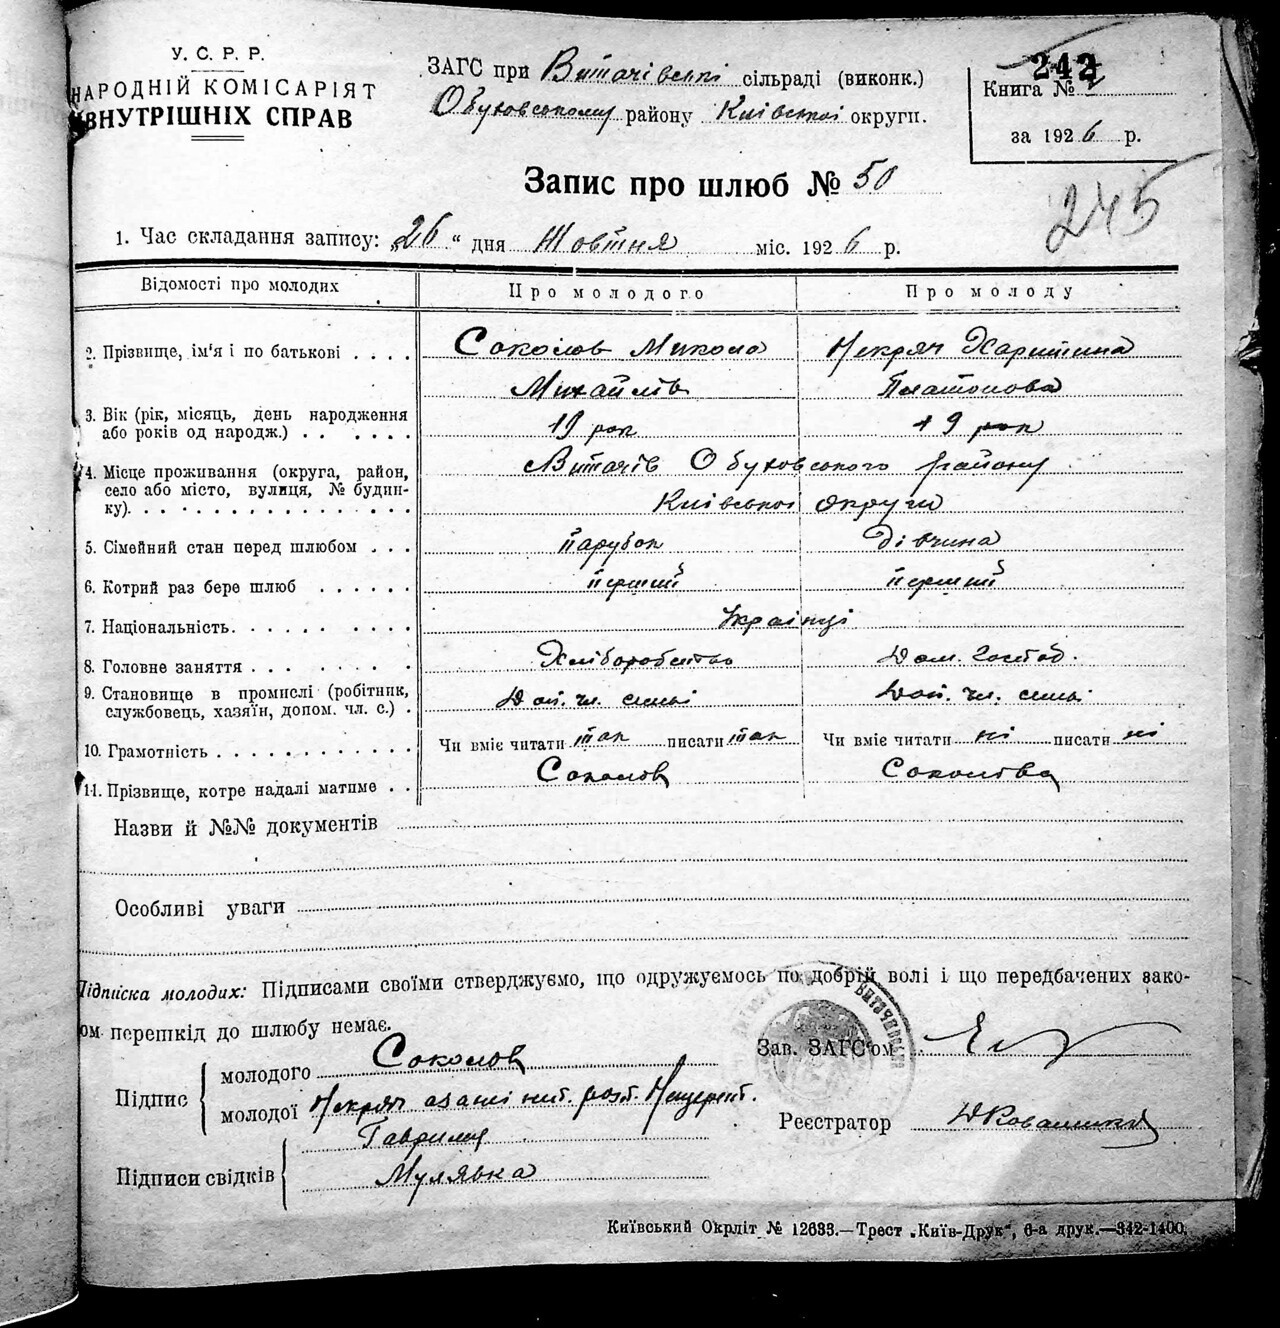 У. С. Р. Р.
НАРОДНІЙ КОМІСАРІЯТ
ВНУТРІШНІХ СПРАВ
ЗАГС при Витачівські сільраді (виконк.)
Обуховському району Київської округи.
242
Книга №
за 1926 р.
245
Запис про шлюб № 50
1. Час складання запису: „26“ дня Жовтня міс. 1926 р.
Відомості про молодих
Про молодого
Про молоду
2. Прізвище, ім'я і по батькові . . . .
Соколов Микола
Михайлів
Некряч Харитина
Платонова
3. Вік (рік, місяць, день народження
або років од народж.) . . . . . .
19 рок
19 рок
4. Місце проживання (округа, район,
село або місто, вулиця, № будин-
ку). . . . . . . . . . . . . . . .
Витачів Обуховського району
Київської округи
5. Сімейний стан перед шлюбом . . .
парубок
дівчина
6. Котрий раз бере шлюб . . . . . .
перший
перший
7. Національність. . . . . . . . . .
Українці
8. Головне заняття . . . . . . . .
Хліборобство
Дом. господ.
9. Становище в промислі (робітник,
службовець, хазяїн, допом. чл. с.) .
Доп. чл. сем'ї
Доп. чл. сем'ї
10. Грамотність . . . . . . . . . . .
Чи вміє читати так писати так
Чи вміє читати ні писати ні
11. Прізвище, котре надалі матиме . .
Соколов
Соколова
Назви й №№ документів
Особливі уваги
Підписка молодих: Підписами своїми стверджуємо, що одружуємось по добрій волі і що передбачених зако-
ом перешкід до шлюбу немає.
Зав. ЗАГС'ом
Підпис
молодого Соколов
молодої Некряч
Реєстратор
Підписи свідків
Гаврилец
Мулявка
Київський Окрліт № 12633.—Трест „Київ-Друк“, 6-а друк.—342-1400.